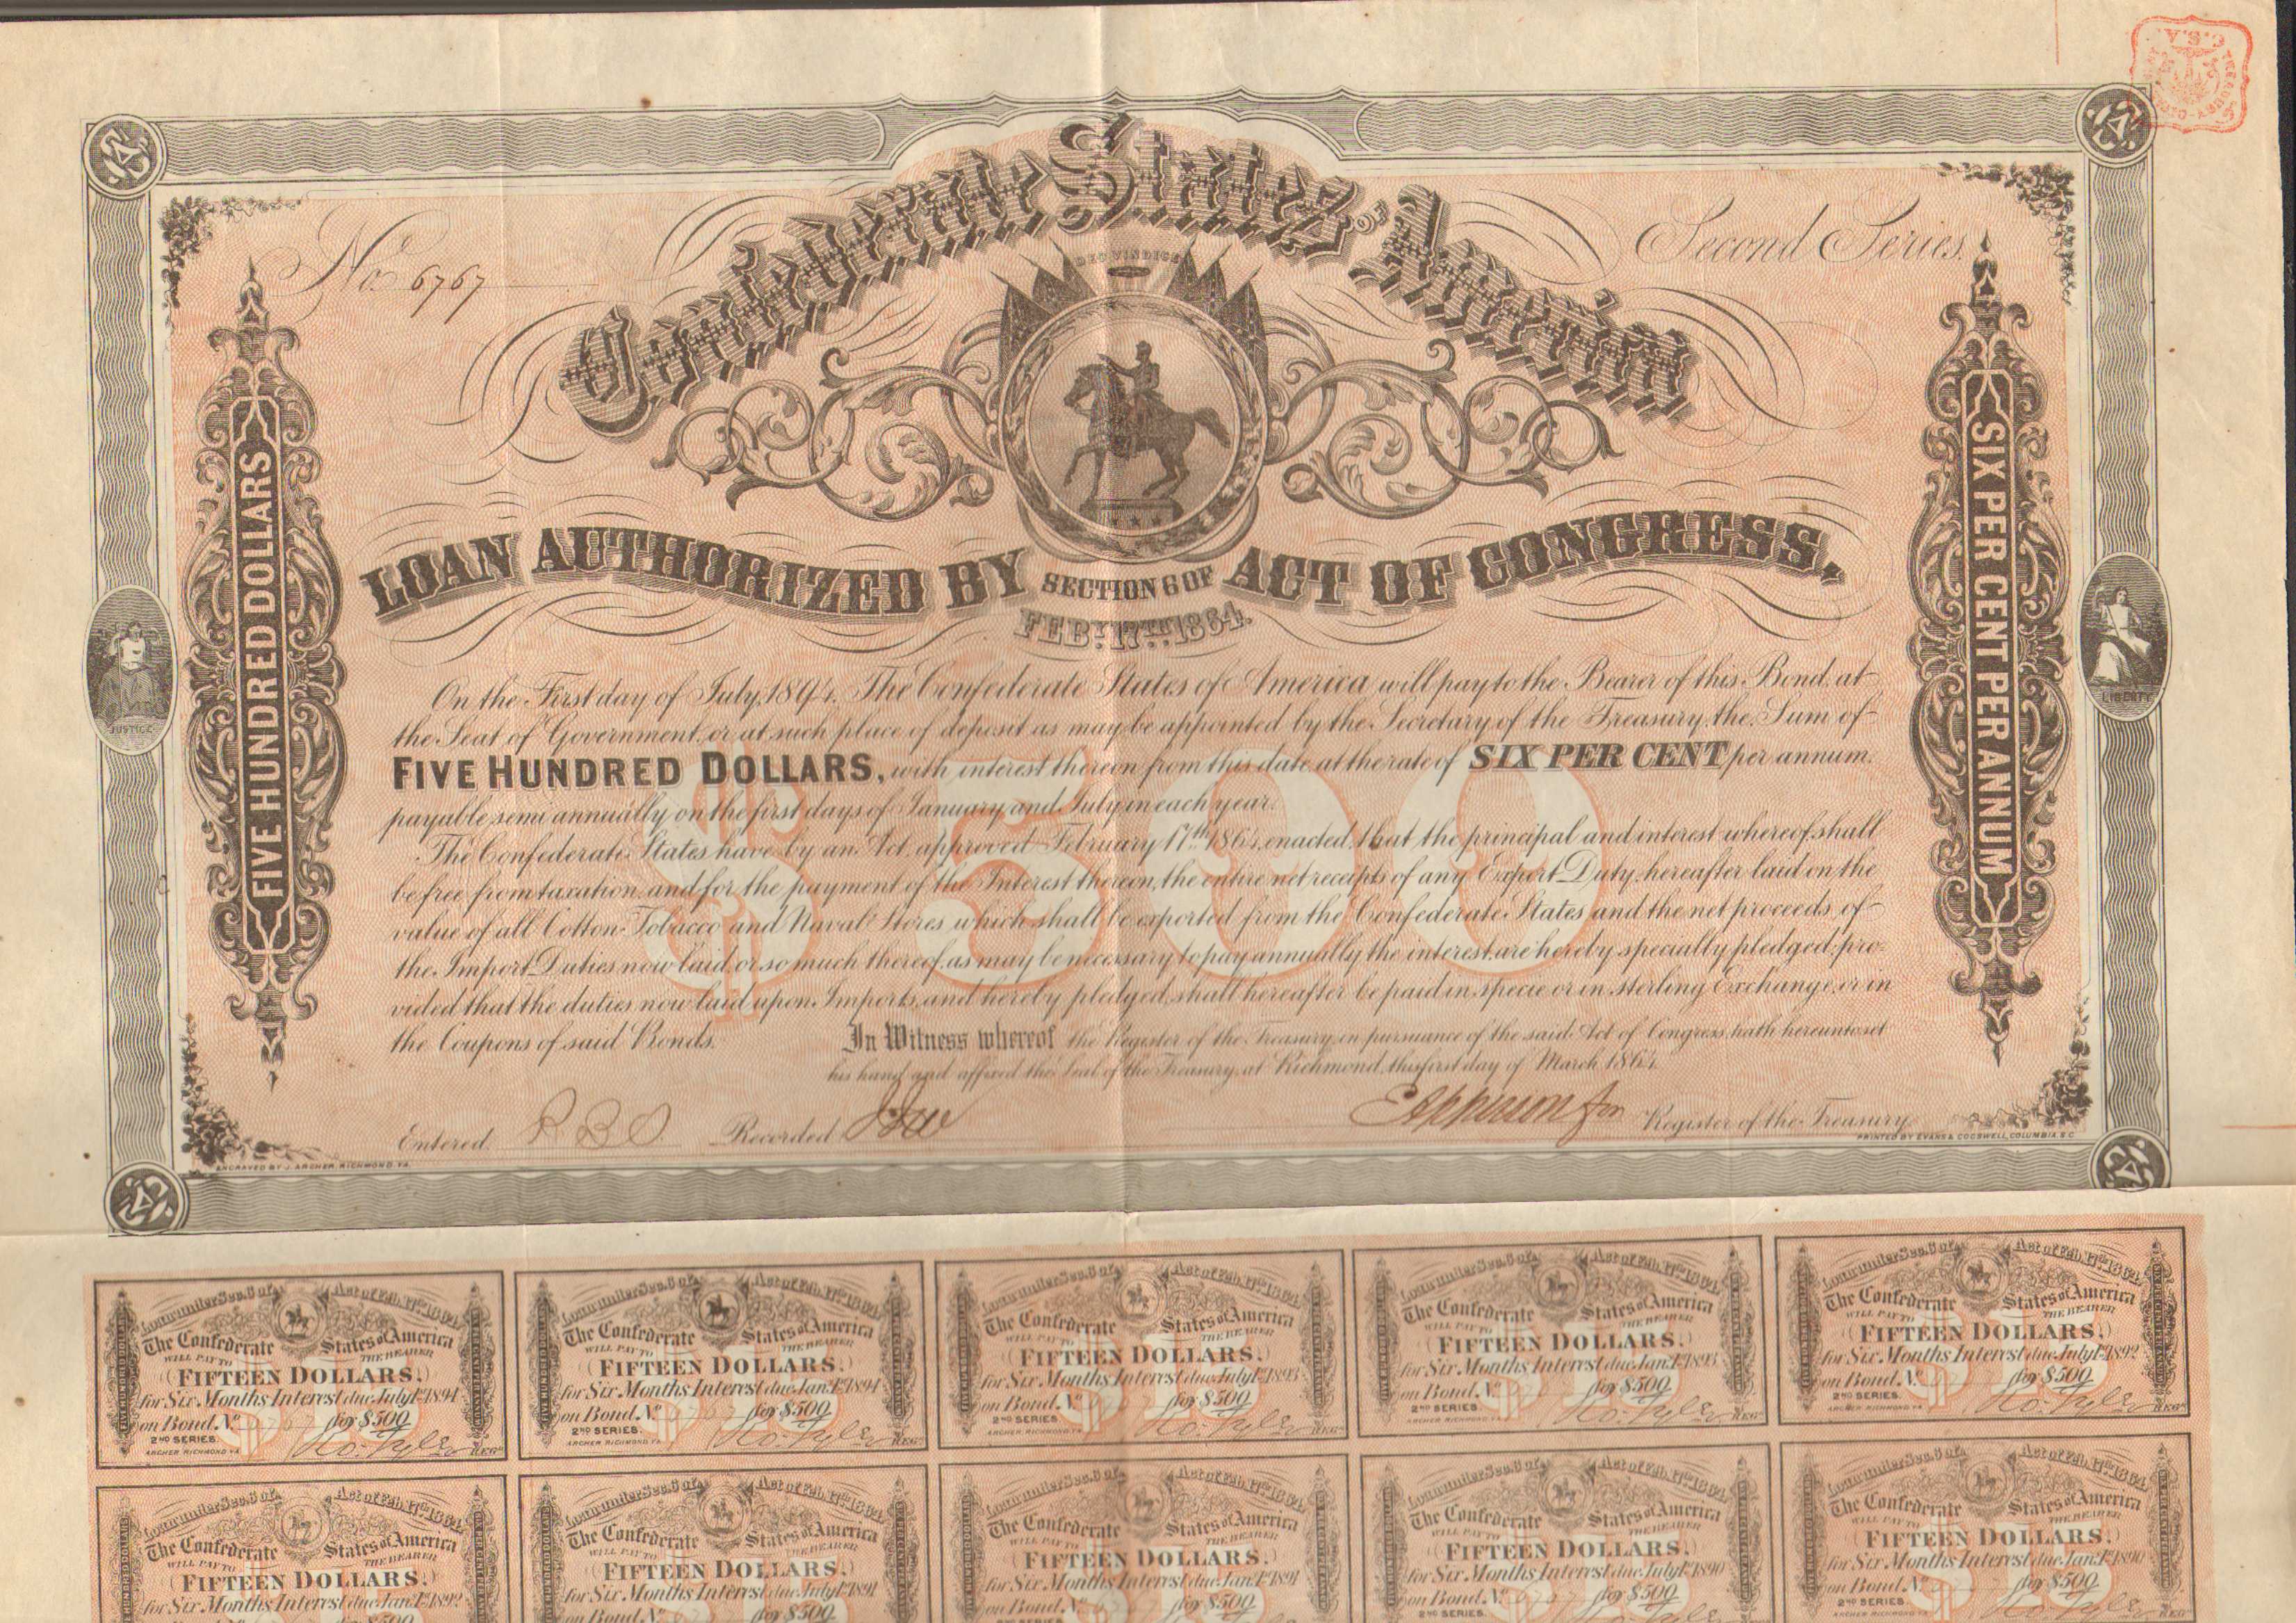 C.S.A.
Confederate States of America
DEO VINDICE
No. 6767
Second Series.
LOAN AUTHORIZED BY SECTION 6 OF ACT OF CONGRESS,
FEBY. 17TH. 1864.
FIVE HUNDRED DOLLARS
SIX PER CENT PER ANNUM
JUSTICE
LIBERTY
$500
On the First day of July, 1894, The Confederate States of America will pay to the Bearer of this Bond, at
the Seat of Government, or at such place of deposit as may be appointed by the Secretary of the Treasury, the Sum of
FIVE HUNDRED DOLLARS, with interest thereon from this date, at the rate of SIX PER CENT per annum.
payable semi annually on the first days of January and July in each year.
The Confederate States have by an Act, approved February 17th 1864, enacted, that the principal and interest whereof shall
be free from taxation, and for the payment of the Interest thereon, the entire net receipts of any Export Duty, hereafter laid on the
value of all Cotton Tobacco and Naval Stores, which shall be exported from the Confederate States, and the net proceeds of
the Import Duties now laid, or so much thereof, as may be necessary to pay annually the interest, are hereby specially pledged, pro-
vided that the duties now laid upon Imports, and hereby pledged, shall hereafter be paid in specie or in sterling Exchange, or in
the Coupons of said Bonds. In Witness whereof the Register of the Treasury, in pursuance of the said Act of Congress, hath hereunto set
his hand and affixed the Seal of the Treasury, at Richmond, this first day of March 1864.
Entered Recorded Register of the Treasury
ENGRAVED BY J. ARCHER, RICHMOND, VA.
PRINTED BY EVANS & COGSWELL, COLUMBIA, S.C.
Loan under Sec. 6 of Act of Feb. 17th 1864.
The Confederate States of America
WILL PAY TO THE BEARER
FIFTEEN DOLLARS,
for Six Months Interest due July 1st 1894
on Bond No. 6767 for $500
2ND SERIES. Ro. Tyler REGR
ARCHER RICHMOND VA
Loan under Sec. 6 of Act of Feb. 17th 1864.
The Confederate States of America
WILL PAY TO THE BEARER
FIFTEEN DOLLARS,
for Six Months Interest due Jan. 1st 1894
on Bond No. 6767 for $500
2ND SERIES. Ro. Tyler REGR
ARCHER RICHMOND VA
Loan under Sec. 6 of Act of Feb. 17th 1864.
The Confederate States of America
WILL PAY TO THE BEARER
FIFTEEN DOLLARS,
for Six Months Interest due July 1st 1893
on Bond No. 6767 for $500
2ND SERIES. Ro. Tyler REGR
ARCHER RICHMOND VA
Loan under Sec. 6 of Act of Feb. 17th 1864.
The Confederate States of America
WILL PAY TO THE BEARER
FIFTEEN DOLLARS,
for Six Months Interest due Jan. 1st 1893
on Bond No. 6767 for $500
2ND SERIES. Ro. Tyler REGR
ARCHER RICHMOND VA
Loan under Sec. 6 of Act of Feb. 17th 1864.
The Confederate States of America
WILL PAY TO THE BEARER
FIFTEEN DOLLARS,
for Six Months Interest due July 1st 1892
on Bond No. 6767 for $500
2ND SERIES. Ro. Tyler REGR
ARCHER RICHMOND VA
Loan under Sec. 6 of Act of Feb. 17th 1864.
The Confederate States of America
WILL PAY TO THE BEARER
FIFTEEN DOLLARS,
for Six Months Interest due Jan. 1st 1892
for $500
Loan under Sec. 6 of Act of Feb. 17th 1864.
The Confederate States of America
WILL PAY TO THE BEARER
FIFTEEN DOLLARS,
for Six Months Interest due July 1st 1891
on Bond No. for $500
Loan under Sec. 6 of Act of Feb. 17th 1864.
The Confederate States of America
WILL PAY TO THE BEARER
FIFTEEN DOLLARS,
for Six Months Interest due Jan. 1st 1891
on Bond No. for $500
Loan under Sec. 6 of Act of Feb. 17th 1864.
The Confederate States of America
WILL PAY TO THE BEARER
FIFTEEN DOLLARS,
for Six Months Interest due July 1st 1890
on Bond No. 6767 for $500
2ND SERIES.
Loan under Sec. 6 of Act of Feb. 17th 1864.
The Confederate States of America
WILL PAY TO THE BEARER
FIFTEEN DOLLARS,
for Six Months Interest due Jan. 1st 1890
on Bond No. for $500
2ND SERIES.